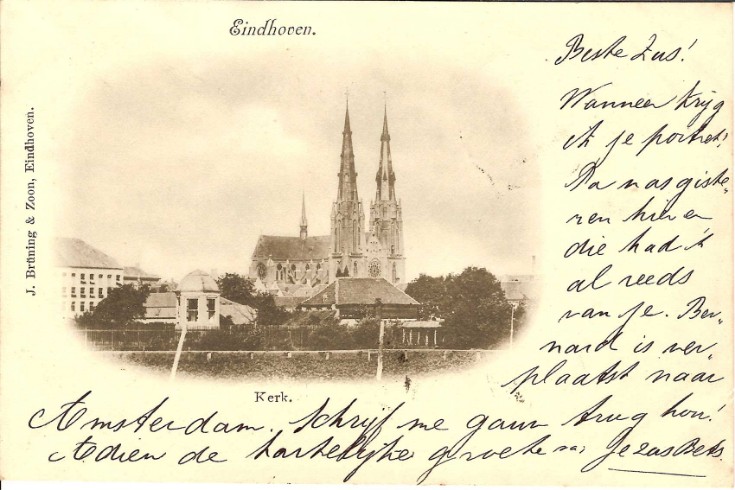 Eindhoven.
J. Brüning & Zoon, Eindhoven.
Kerk.
Beste Zus!
Wanneer krijg
ik je portret?
Pa was giste-
ren hier en
die had 't
al reeds
van je. Ber-
nard is ver-
plaatst naar
Amsterdam. Schrijf me gauw terug hoor!
Adieu de hartelijke groete van je zus Bets.